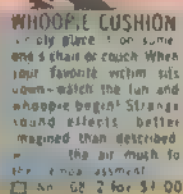 WHOOPEE CUSHION
place on some
one's chair or couch When
your favorite victim sits
down - watch the fun and
whoopee begin! Strange
sound effects better
imagined than described
the air much to
the embarassment
2 for $1 00